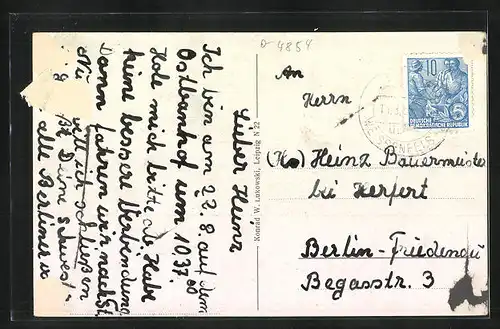 D 4854
Lieber Heinz
Ich bin am 27.8 auf dem
Ostbanhof um 10.37
Hole mich bitte ab. Habe
keine bessere Verbindung
Dann fahren wir nachst.
will ich schließen
Deine Schwest-
alle Berliner
Konrad W. Lukowski, Leipzig N 22
10
DEUTSCHE
DEMOKRATISCHE REPUBLIK
An
Herrn
Heinz Bauermeister
bei Herfert
Berlin-Friedenau
Begasstr. 3